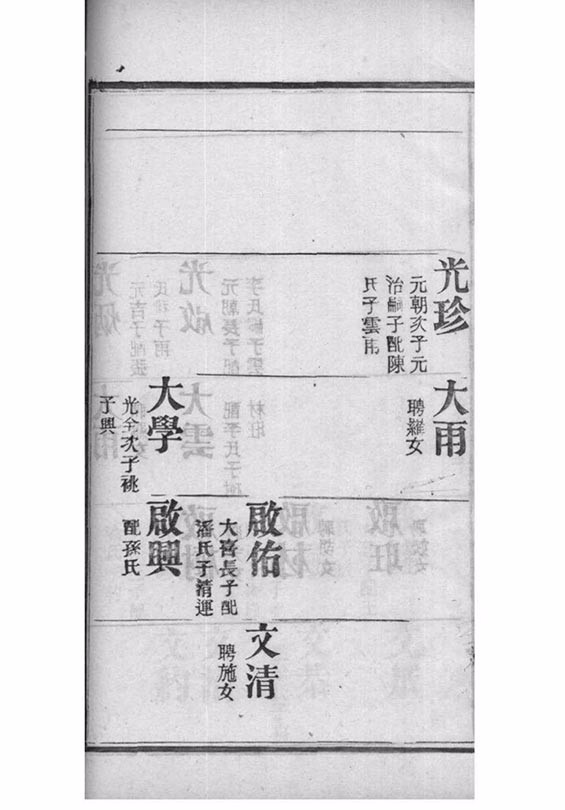 光珍
元朝次子元
治嗣子配陳
氏子雲雨
大雨
聘羅女
啟佑
大喜長子配
潘氏子清運
文清
聘施女
大學
光全次子祧
子興
啟興
配孫氏